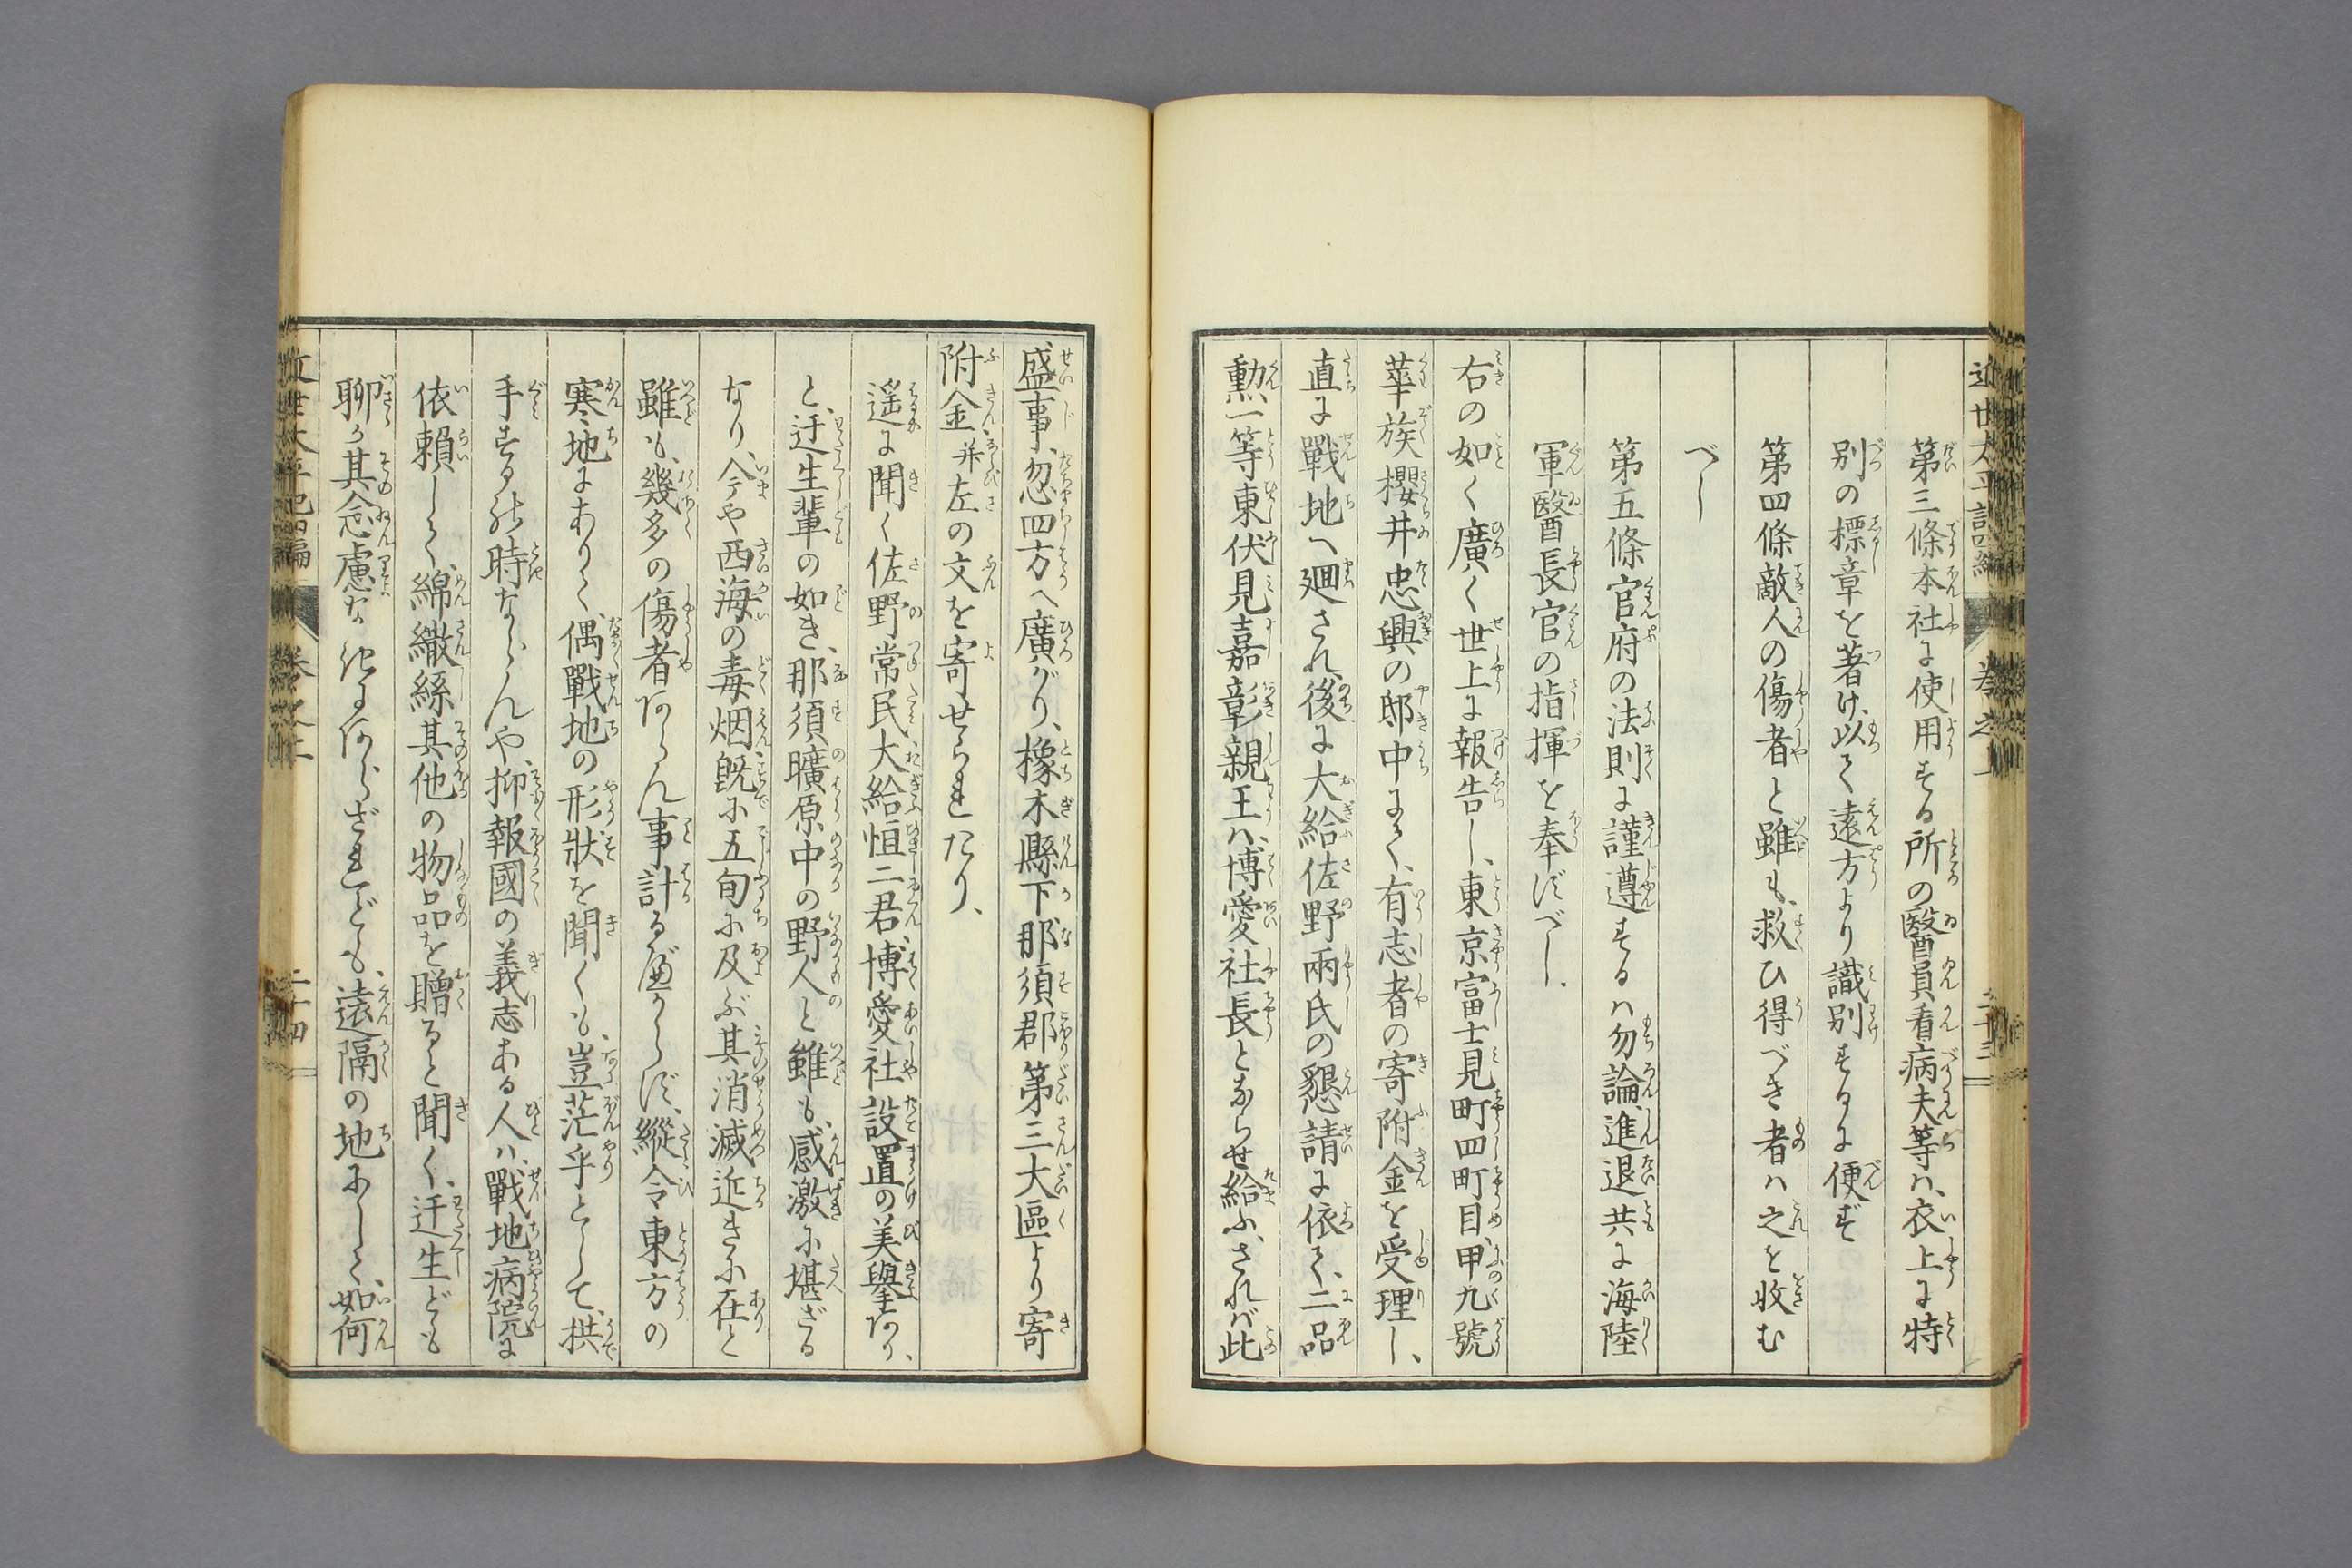 第三條本社に使用する所の醫員看病夫等ハ、衣上に特
別の標章を著け、以て遠方より識別するに便ず
第四條敵人の傷者と雖も、救ひ得べき者ハ之を收む
べし
第五條官府の法則に謹遵するハ勿論、進退共に海陸
軍醫長官の指揮を奉ずべし.
右の如く廣く世上に報告し、東京富士見町四町目甲九號
華族櫻井忠興の邸中にて、有志者の寄附金を受理し、
直に戰地へ廻され後に大給佐野兩氏の懇請に依て、二品
勳一等東伏見嘉彰親王ハ、博愛社長とならせ給ふ、されバ此
盛事、忽四方へ廣がり、橡木縣下那須郡第三大區より寄
附金、并左の文を寄せられたり、
遙に聞く佐野常民、大給恒二君、博愛社設置の美擧あり、
と、迂生輩の如き、那須曠原中の野人と雖も、感激に堪ざる
なり、今や西海の毒烟、既に五旬に及ぶ其消滅近きに在と
雖も、幾多の傷者あらん事計るべからず、縱令東方の
寒地にありて、偶戰地の形狀を聞くも、豈茫乎として、拱
手するの時ならんや、抑報國の義志ある人ハ、戰地病院に
依頼して、綿繖絲其他の物品を贈ると聞く、迂生ども
聊か其念慮なきにあらざれども、遠隔の地にして、如何
近世太平記四編
卷之二
二十四